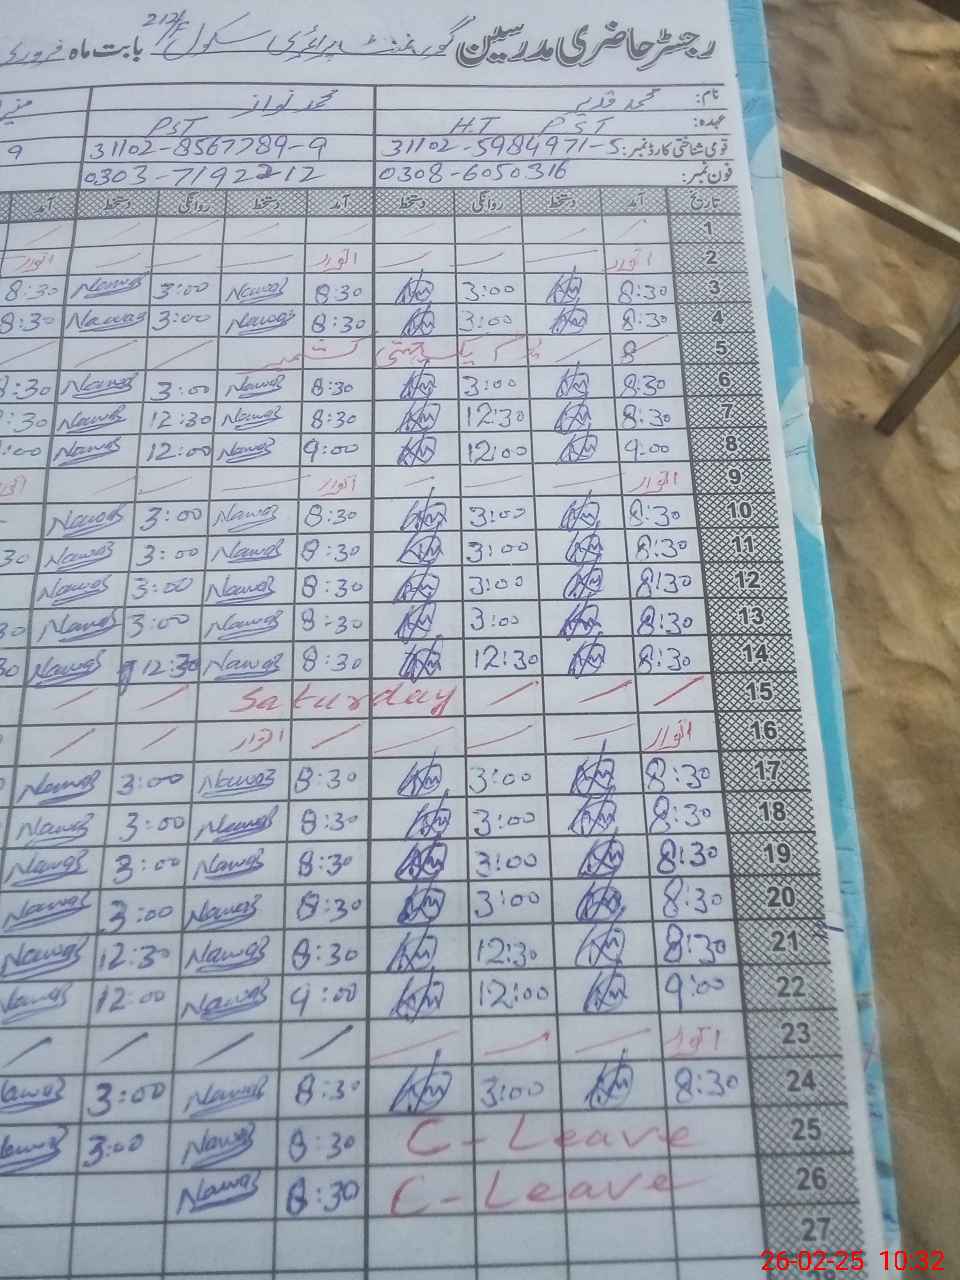 رجسٹر حاضری مدرسین گورنمنٹ پرائمری سکول 212/ بابت ماہ فروری
نام: محمد قدیر محمد نواز
عہدہ: H.T PST PST
قومی شناختی کارڈ نمبر: 31102-5984971-5 31102-8567789-9 9
فون نمبر: 0308-6050316 0303-7192212
تاریخ آمد دستخط روانگی دستخط آمد دستخط روانگی دستخط آمد
1
2 اتوار اتوار اتوار
3 8:30 3:00 8:30 Nawaz 3:00 Nawaz 8:30
4 8:30 3:00 8:30 Nawaz 3:00 Nawaz 8:30
5 8 یوم یکجہتی کشمیر
6 8:30 3:00 8:30 Nawaz 3:00 Nawaz :30
7 8:30 12:30 8:30 Nawaz 12:30 Nawaz :30
8 9:00 12:00 9:00 Nawaz 12:00 Nawaz :00
9 اتوار اتوار
10 8:30 3:00 8:30 Nawaz 3:00 Nawaz
11 8:30 3:00 8:30 Nawaz 3:00 Nawaz 30
12 8:30 3:00 8:30 Nawaz 3:00 Nawaz
13 8:30 3:00 8:30 Nawaz 3:00 Nawaz 30
14 8:30 12:30 8:30 Nawaz 12:30 Nawaz 30
15 Saturday
16 اتوار اتوار
17 8:30 3:00 8:30 Nawaz 3:00 Nawaz
18 8:30 3:00 8:30 Nawaz 3:00 Nawaz
19 8:30 3:00 8:30 Nawaz 3:00 Nawaz
20 8:30 3:00 8:30 Nawaz 3:00 Nawaz
21 8:30 12:30 8:30 Nawaz 12:30 Nawaz
22 9:00 12:00 9:00 Nawaz 12:00 Nawaz
23 اتوار
24 8:30 3:00 8:30 Nawaz 3:00 Nawaz
25 C-Leave 8:30 Nawaz 3:00 Nawaz
26 C-Leave 8:30 Nawaz
27
26-02-25 10:32